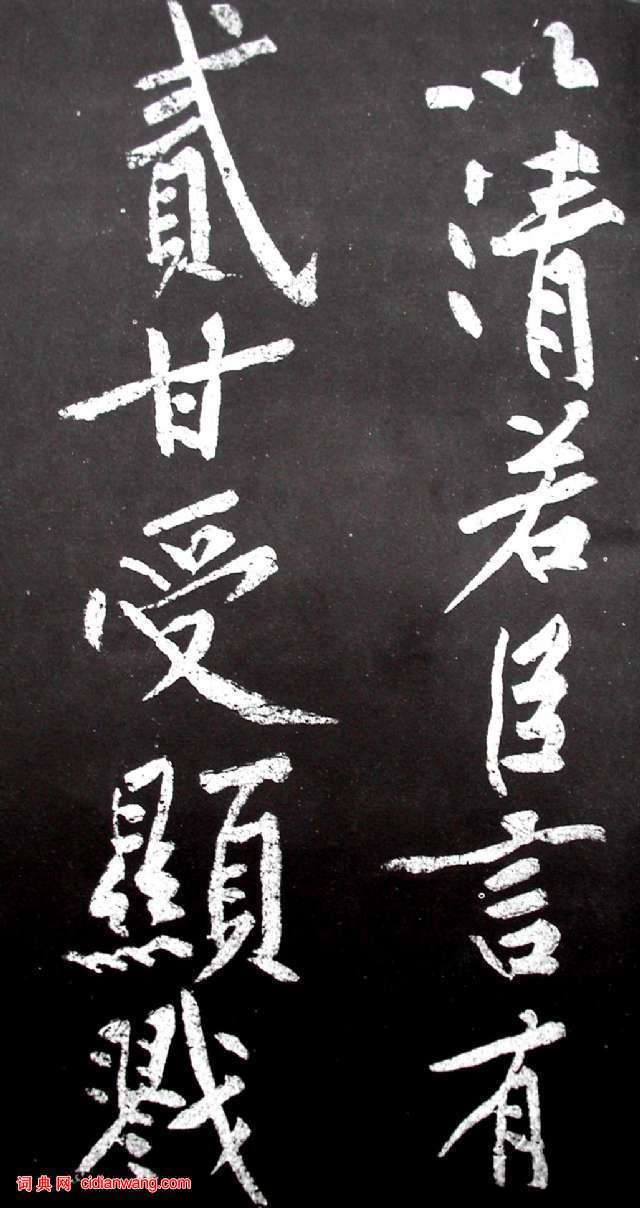 以清若臣言有
貳甘受顯戮
词典网 cidianwang.com